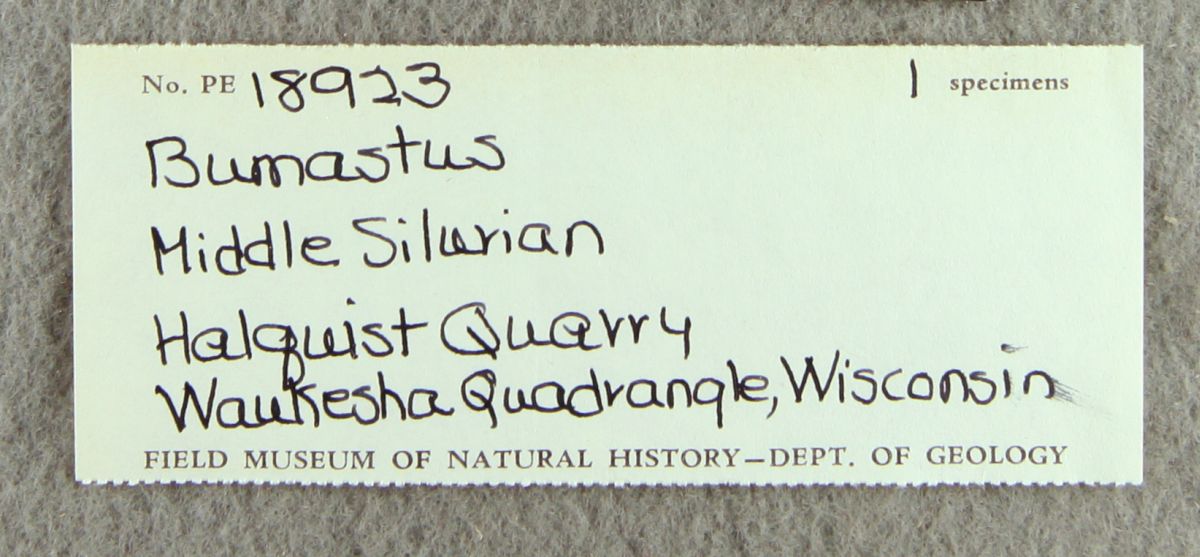 No. PE 18923 1 specimens
Bumastus
Middle Silurian
Halquist Quarry
Waukesha Quadrangle, Wisconsin
FIELD MUSEUM OF NATURAL HISTORY—DEPT. OF GEOLOGY